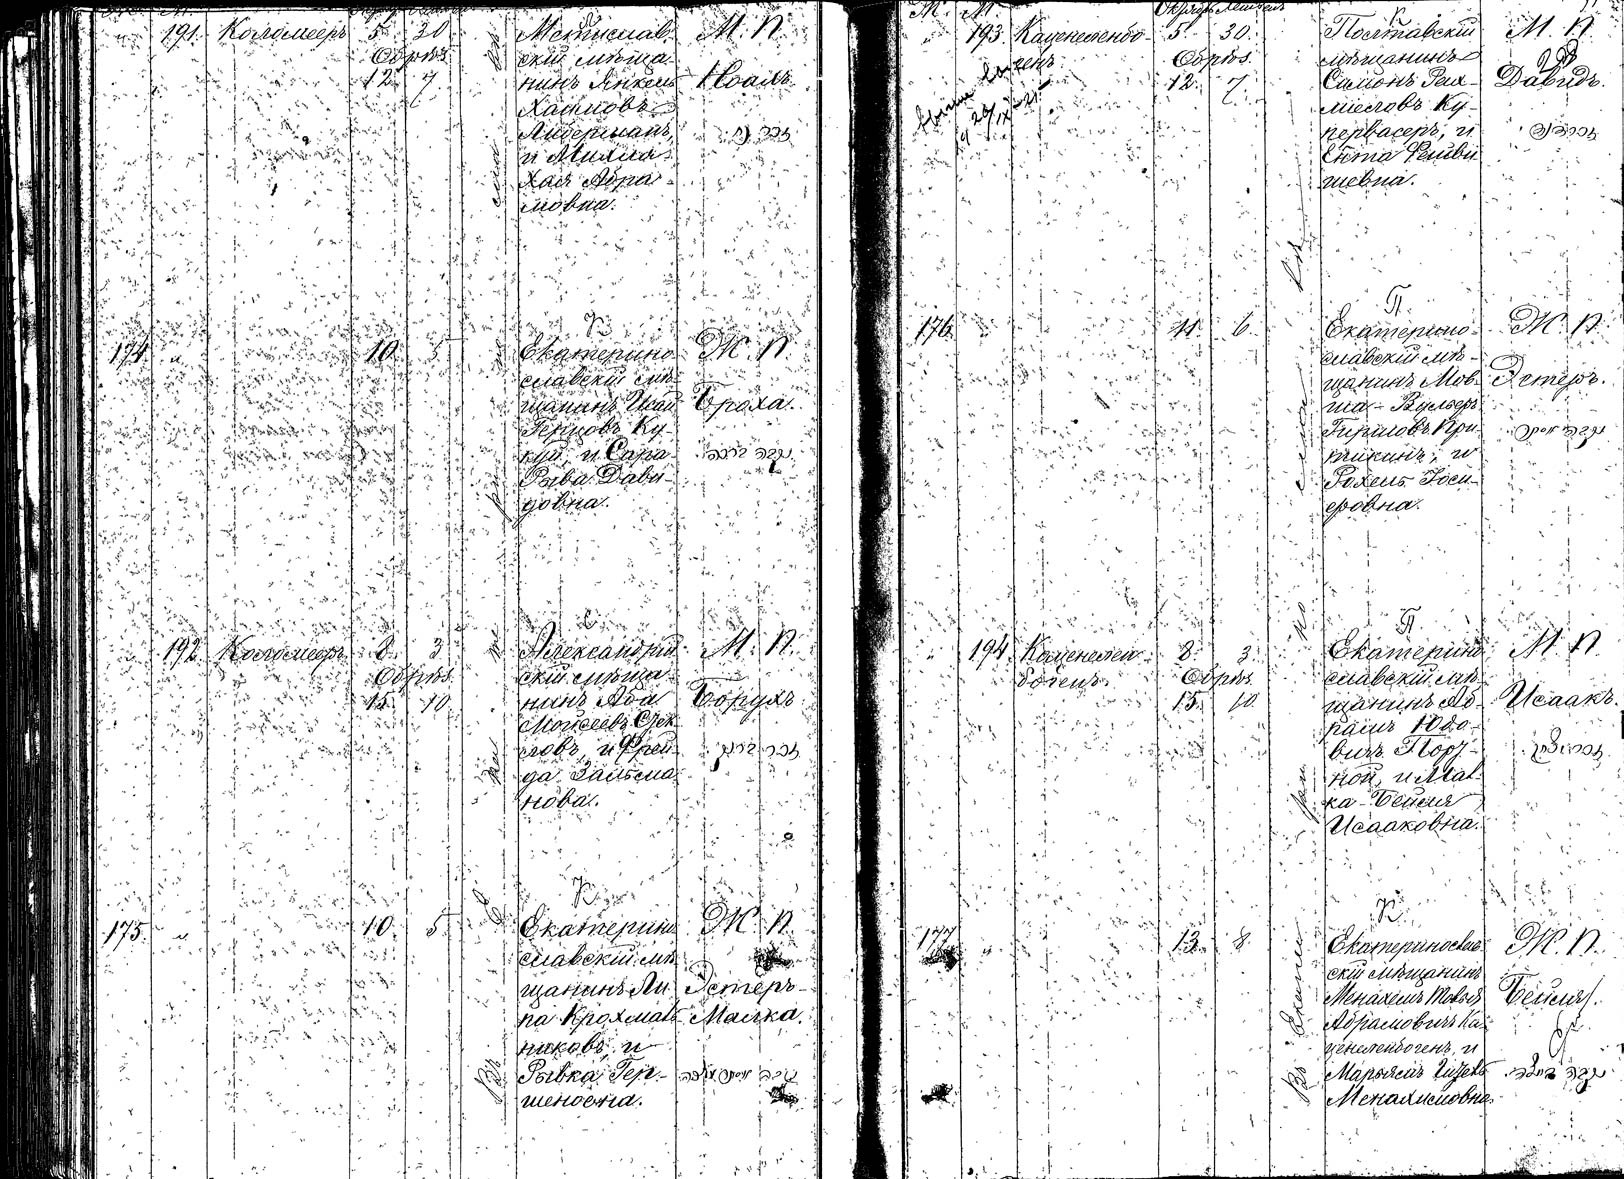 191. Коломеер 5 30
Обрѣз.
12 7
Мстислав-
скій мѣща-
нинъ Янкель
Хаимовъ
Либерманъ,
и Михля
Хая Абра-
мовна.
М. П.
Ноахъ.
174 " 10 5
К
Екатерино-
славскій мѣ-
щанинъ Исай
Герцовъ Ку-
куй, и Сара-
Рыва Дави-
довна.
Ж. П.
Броха.
נקבה ברכה
192. Коломеер 8 3
Обрѣз.
15 10
С
Александрій-
скій мѣща-
нинъ Аба
Мойсеевъ
и Фрей-
да Зальма-
нова.
М. П.
Борухъ
זכר ברוך
175. " 10. 5
К
Екатерино-
славскій мѣ-
щанинъ Ли-
па Крохмаль-
никовъ, и
Рывка Гер-
шеновна.
Ж. П.
Эстеръ-
Малка.
נקבה אסתר מלכה
Ж. М.
193. Каценеленбо-
генъ
5. 30.
Обрѣз.
12. 7
К
Полтавскій
мѣщанинъ
Симонъ Рах-
міеловъ Ку-
первасеръ, и
Ента Фейви-
шевна.
М. П.
Давидъ.
זכר דוד
176. " 11. 6
П
Екатерино-
славскій мѣ-
щанинъ Мов-
ша-Вульфъ
Гиршовъ При-
и
Рохель Іоси-
фовна.
Ж. П.
Эстеръ.
נקבה אסתר
194 Каценелен-
богенъ.
8. 3.
Обрѣз.
15. 10
П
Екатерино-
славскій мѣ-
щанинъ Аб-
рамъ Юдо-
вичъ Порт-
ной, и Мал-
ка-Бейля
Исааковна.
М. П.
Исаакъ.
זכר יצחק
177 " 13. 8.
К
Екатеринослав-
скій мѣщанинъ
Менахемъ Товья
Абрамовичъ Ка-
ценеленбогенъ, и
Марьямъ
Менахимовна.
Ж. П.
Бейля.
נקבה ביילה